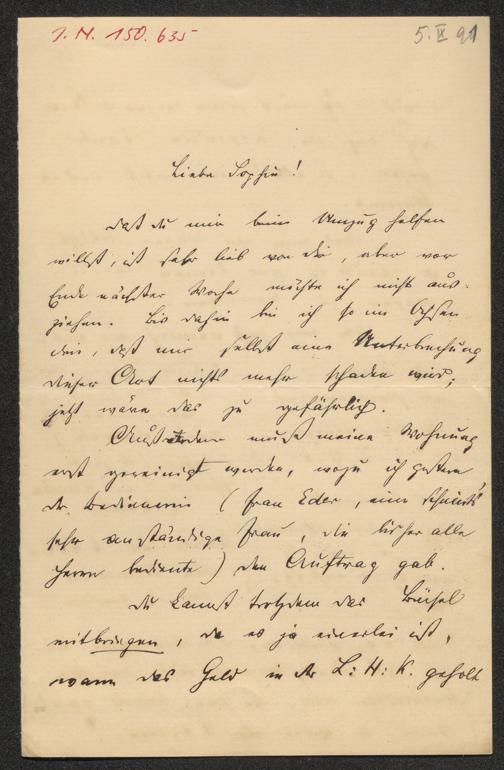 J. N. 150.635
5. IX 91
Liebe Sophie!
Daß du mir beim Umzug helfen
willst, ist sehr lieb von dir, aber vor
Ende nächster Woche möchte ich nicht aus-
ziehen. Bis dahin bin ich so im
drin, daß mir selbst eine Unterbrechung
dieser Art nichts mehr schaden wird;
jetzt wäre das zu gefährlich.
Außerdem muß meine Wohnung
erst gereinigt werden, wozu ich gestern
der Bedienerin (Frau Eder, eine scheint's
sehr anständige Frau, die bisher alle
Herrn bediente) den Auftrag gab.
Du kannst trotzdem das Büchel
mitbringen, da es ja einerlei ist,
wann das Geld in der L: H: K. geholt